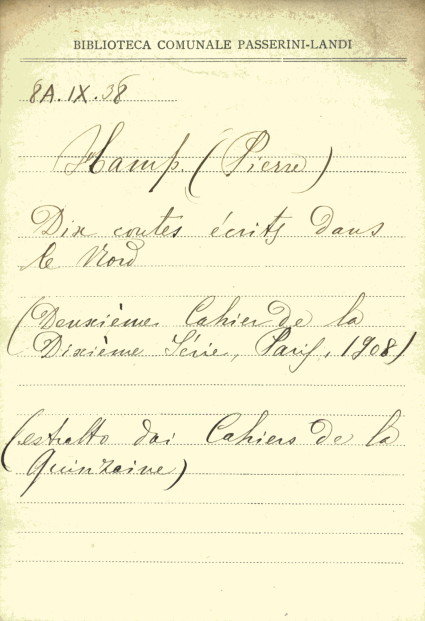 BIBLIOTECA COMUNALE PASSERINI-LANDI
8A.IX.38
Hamp. (Pierre)
Dix contes écrits dans
le Nord
(Deuxième Cahier de la
Dixième Série, Paris, 1908)
(estratto dai Cahiers de la
Quinzaine)